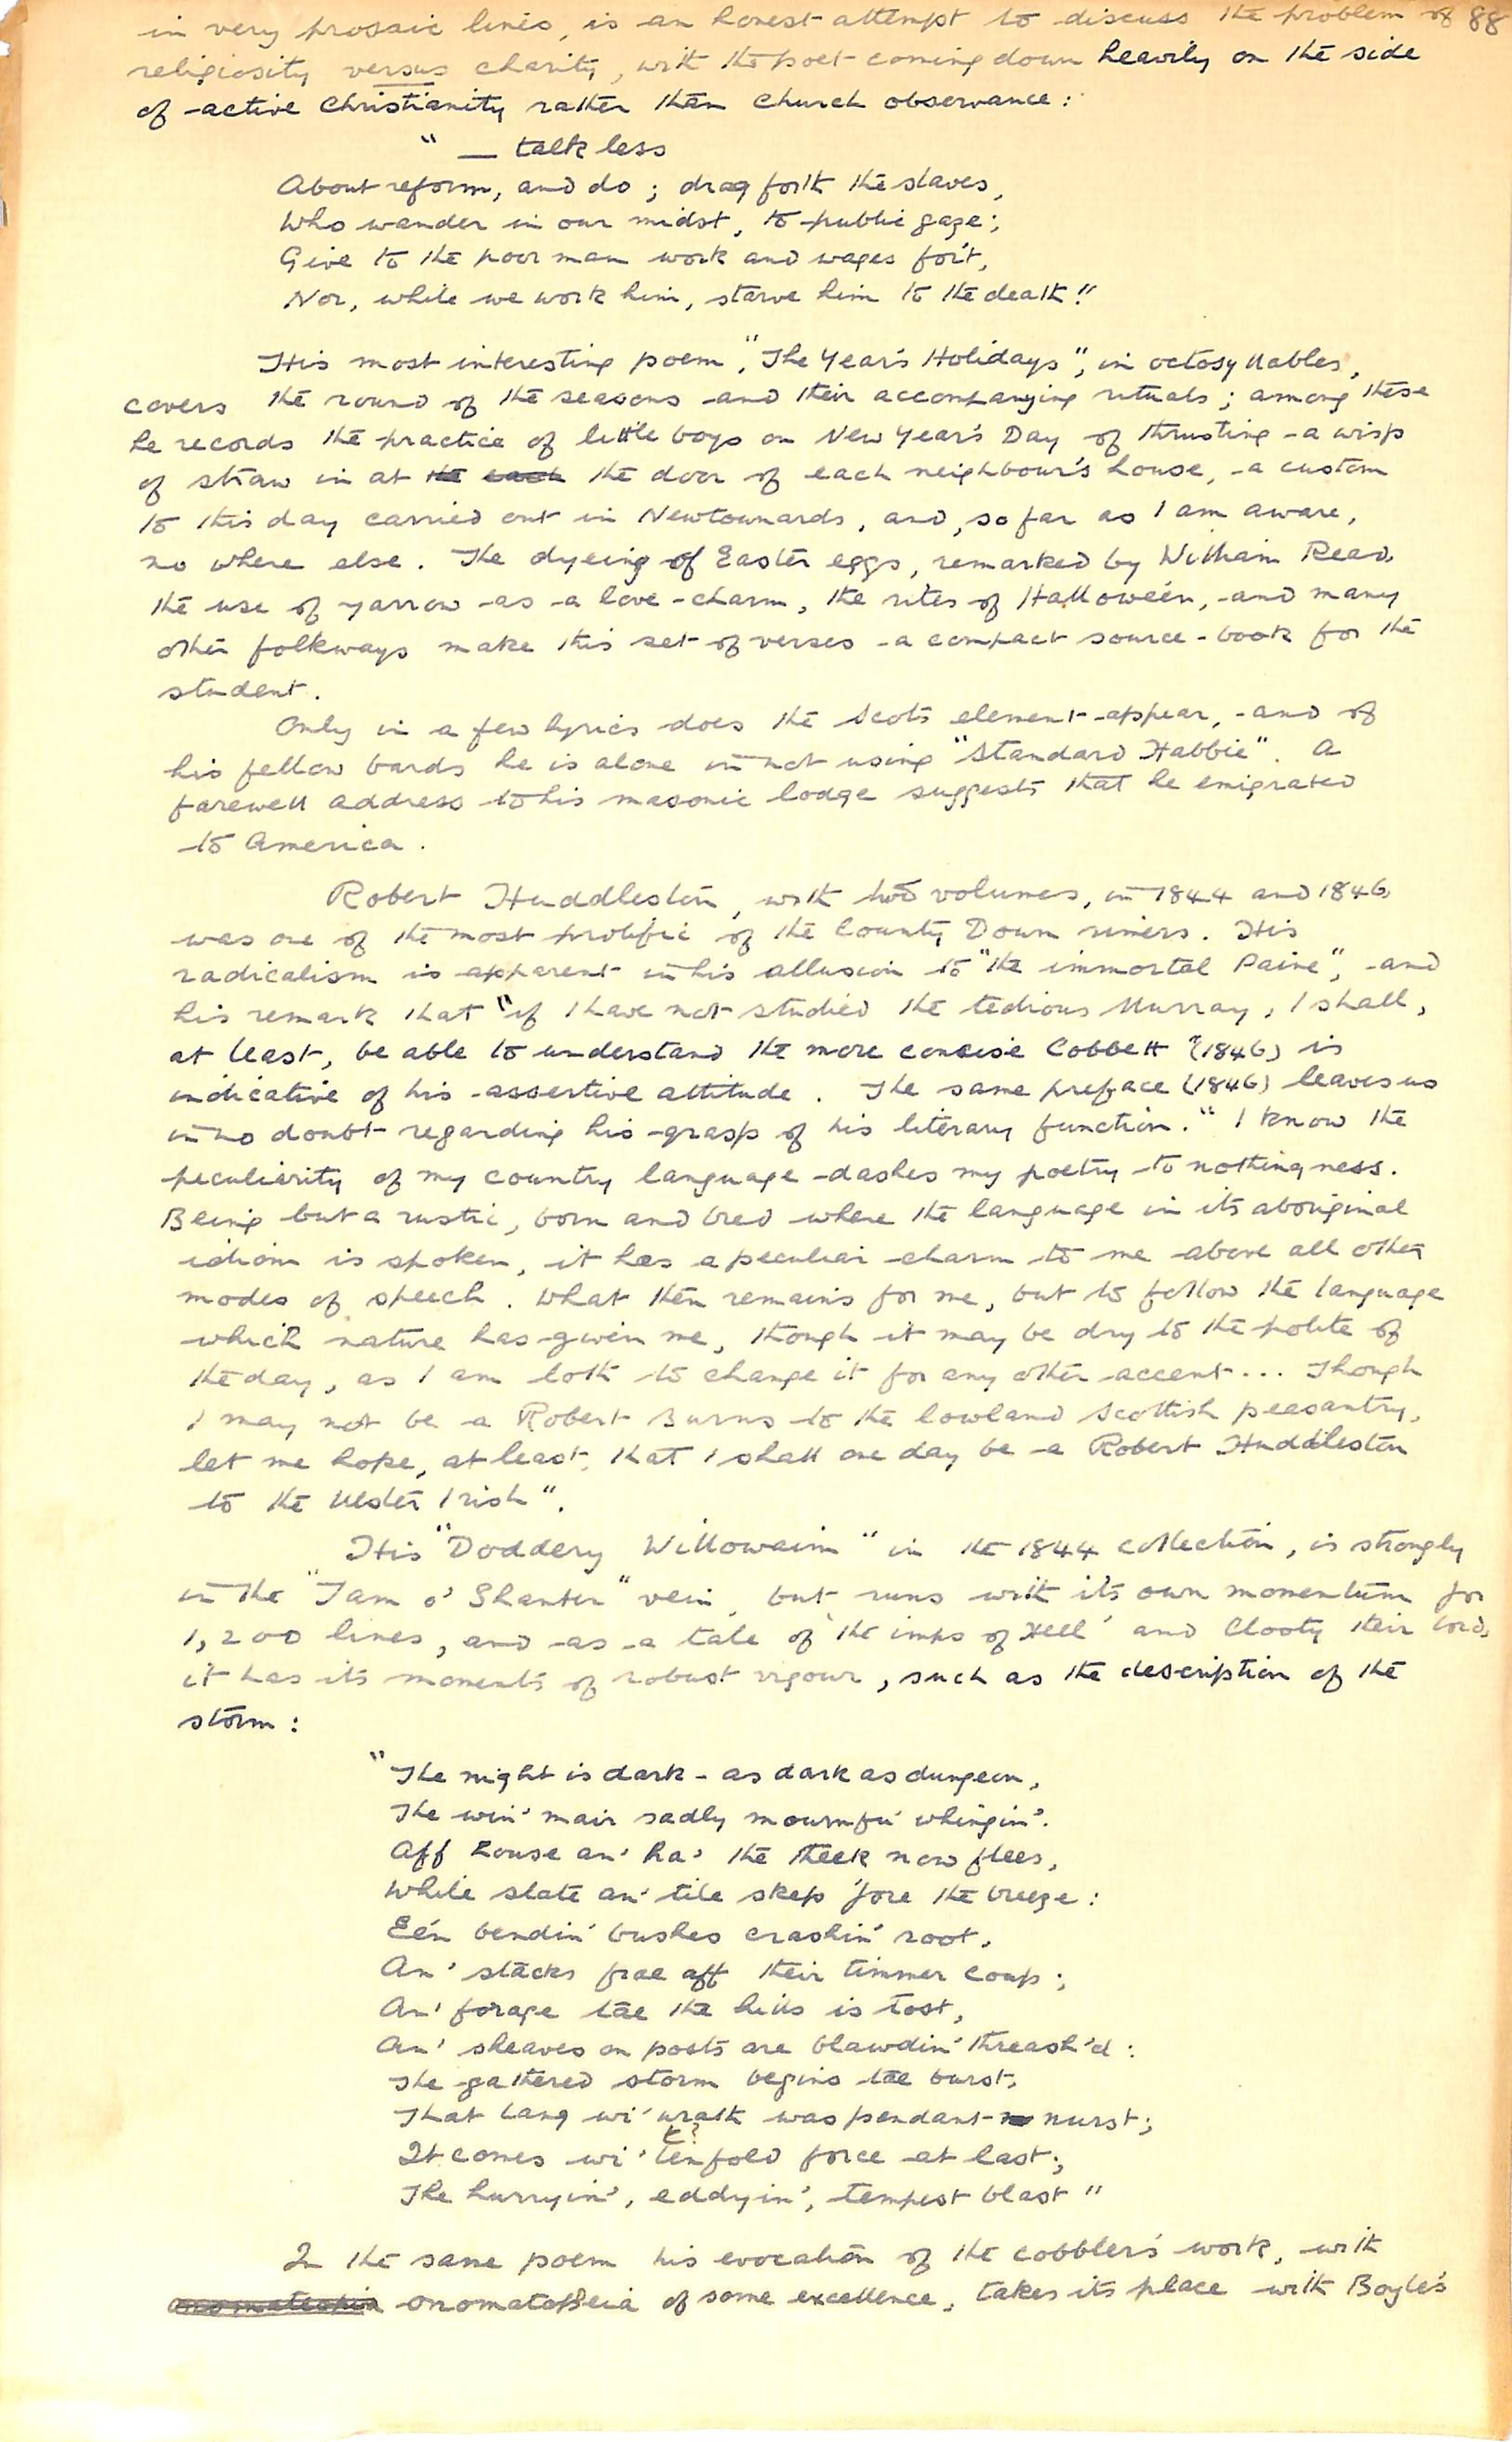 in very prosaic lines, is an honest attempt to discuss the problem of 88
religiosity versus charity, with the poet coming down heavily on the side
of active Christianity rather than church observance:
" — talk less
About reform, and do; drag forth the slaves,
Who wander in our midst, to public gaze;
Give to the poor man work and wages for't,
Nor, while we work him, starve him to the death!"
His most interesting poem, "The Year's Holidays", in octosyllables,
covers the round of the seasons and their accompanying rituals; among these
he records the practice of little boys on New Year's Day of thrusting a wisp
of straw in at the each the door of each neighbour's house, a custom
to this day carried out in Newtownards, and, so far as I am aware,
no where else. The dyeing of Easter eggs, remarked by William Read,
the use of yarrow as a love-charm, the rites of Hallowe'en, and many
other folkways make this set of verses a compact source-book for the
student.
Only in a few lyrics does the Scots element appear, and of
his fellow bards he is alone in not using "Standard Habbie". A
farewell address to his masonic lodge suggests that he emigrated
to America.
Robert Huddleston, with two volumes, in 1844 and 1846,
was one of the most prolific of the County Down rimers. His
radicalism is apparent in his allusion to "the immortal Paine", and
his remark that "if I have not studied the tedious Murray, I shall,
at least, be able to understand the more concise Cobbett" (1846) is
indicative of his assertive attitude. The same preface (1846) leaves us
in no doubt regarding his grasp of his literary function. "I know the
peculiarity of my country language dashes my poetry to nothingness.
Being but a rustic, born and bred where the language in its aboriginal
idiom is spoken, it has a peculiar charm to me above all other
modes of speech. What then remains for me, but to follow the language
which nature has given me, though it may be dry to the polite of
the day, as I am loth to change it for any other accent... Though
I may not be a Robert Burns to the lowland Scottish peasantry,
let me hope, at least, that I shall one day be a Robert Huddleston
to the Ulster Irish".
His "Doddery Willowaim" in the 1844 collection, is strongly
in the "Tam o' Shanter" vein, but runs with its own momentum for
1,200 lines, and as a tale of 'the imps of Hell' and Clooty their lord,
it has its moments of robust vigour, such as the description of the
storm:
"The night is dark - as dark as dungeon,
The win' mair sadly mournfu' whingin'.
Aff house an' ha' the theek now flees,
While slate an' tile skep 'fore the breeze:
E'en bendin' bushes crashin' root,
An' stacks frae aff their timmer coup;
An' forage tae the hills is tost,
An' sheaves on posts are blawdin' threash'd:
The gathered storm begins tae burst,
That lang wi' wrath was pendant nurst;
t?
It comes wi' tenfold force at last;
The hurryin', eddyin', tempest blast"
In the same poem his evocation of the cobbler's work, with
onomatopoeia of some excellence, takes its place with Boyle's